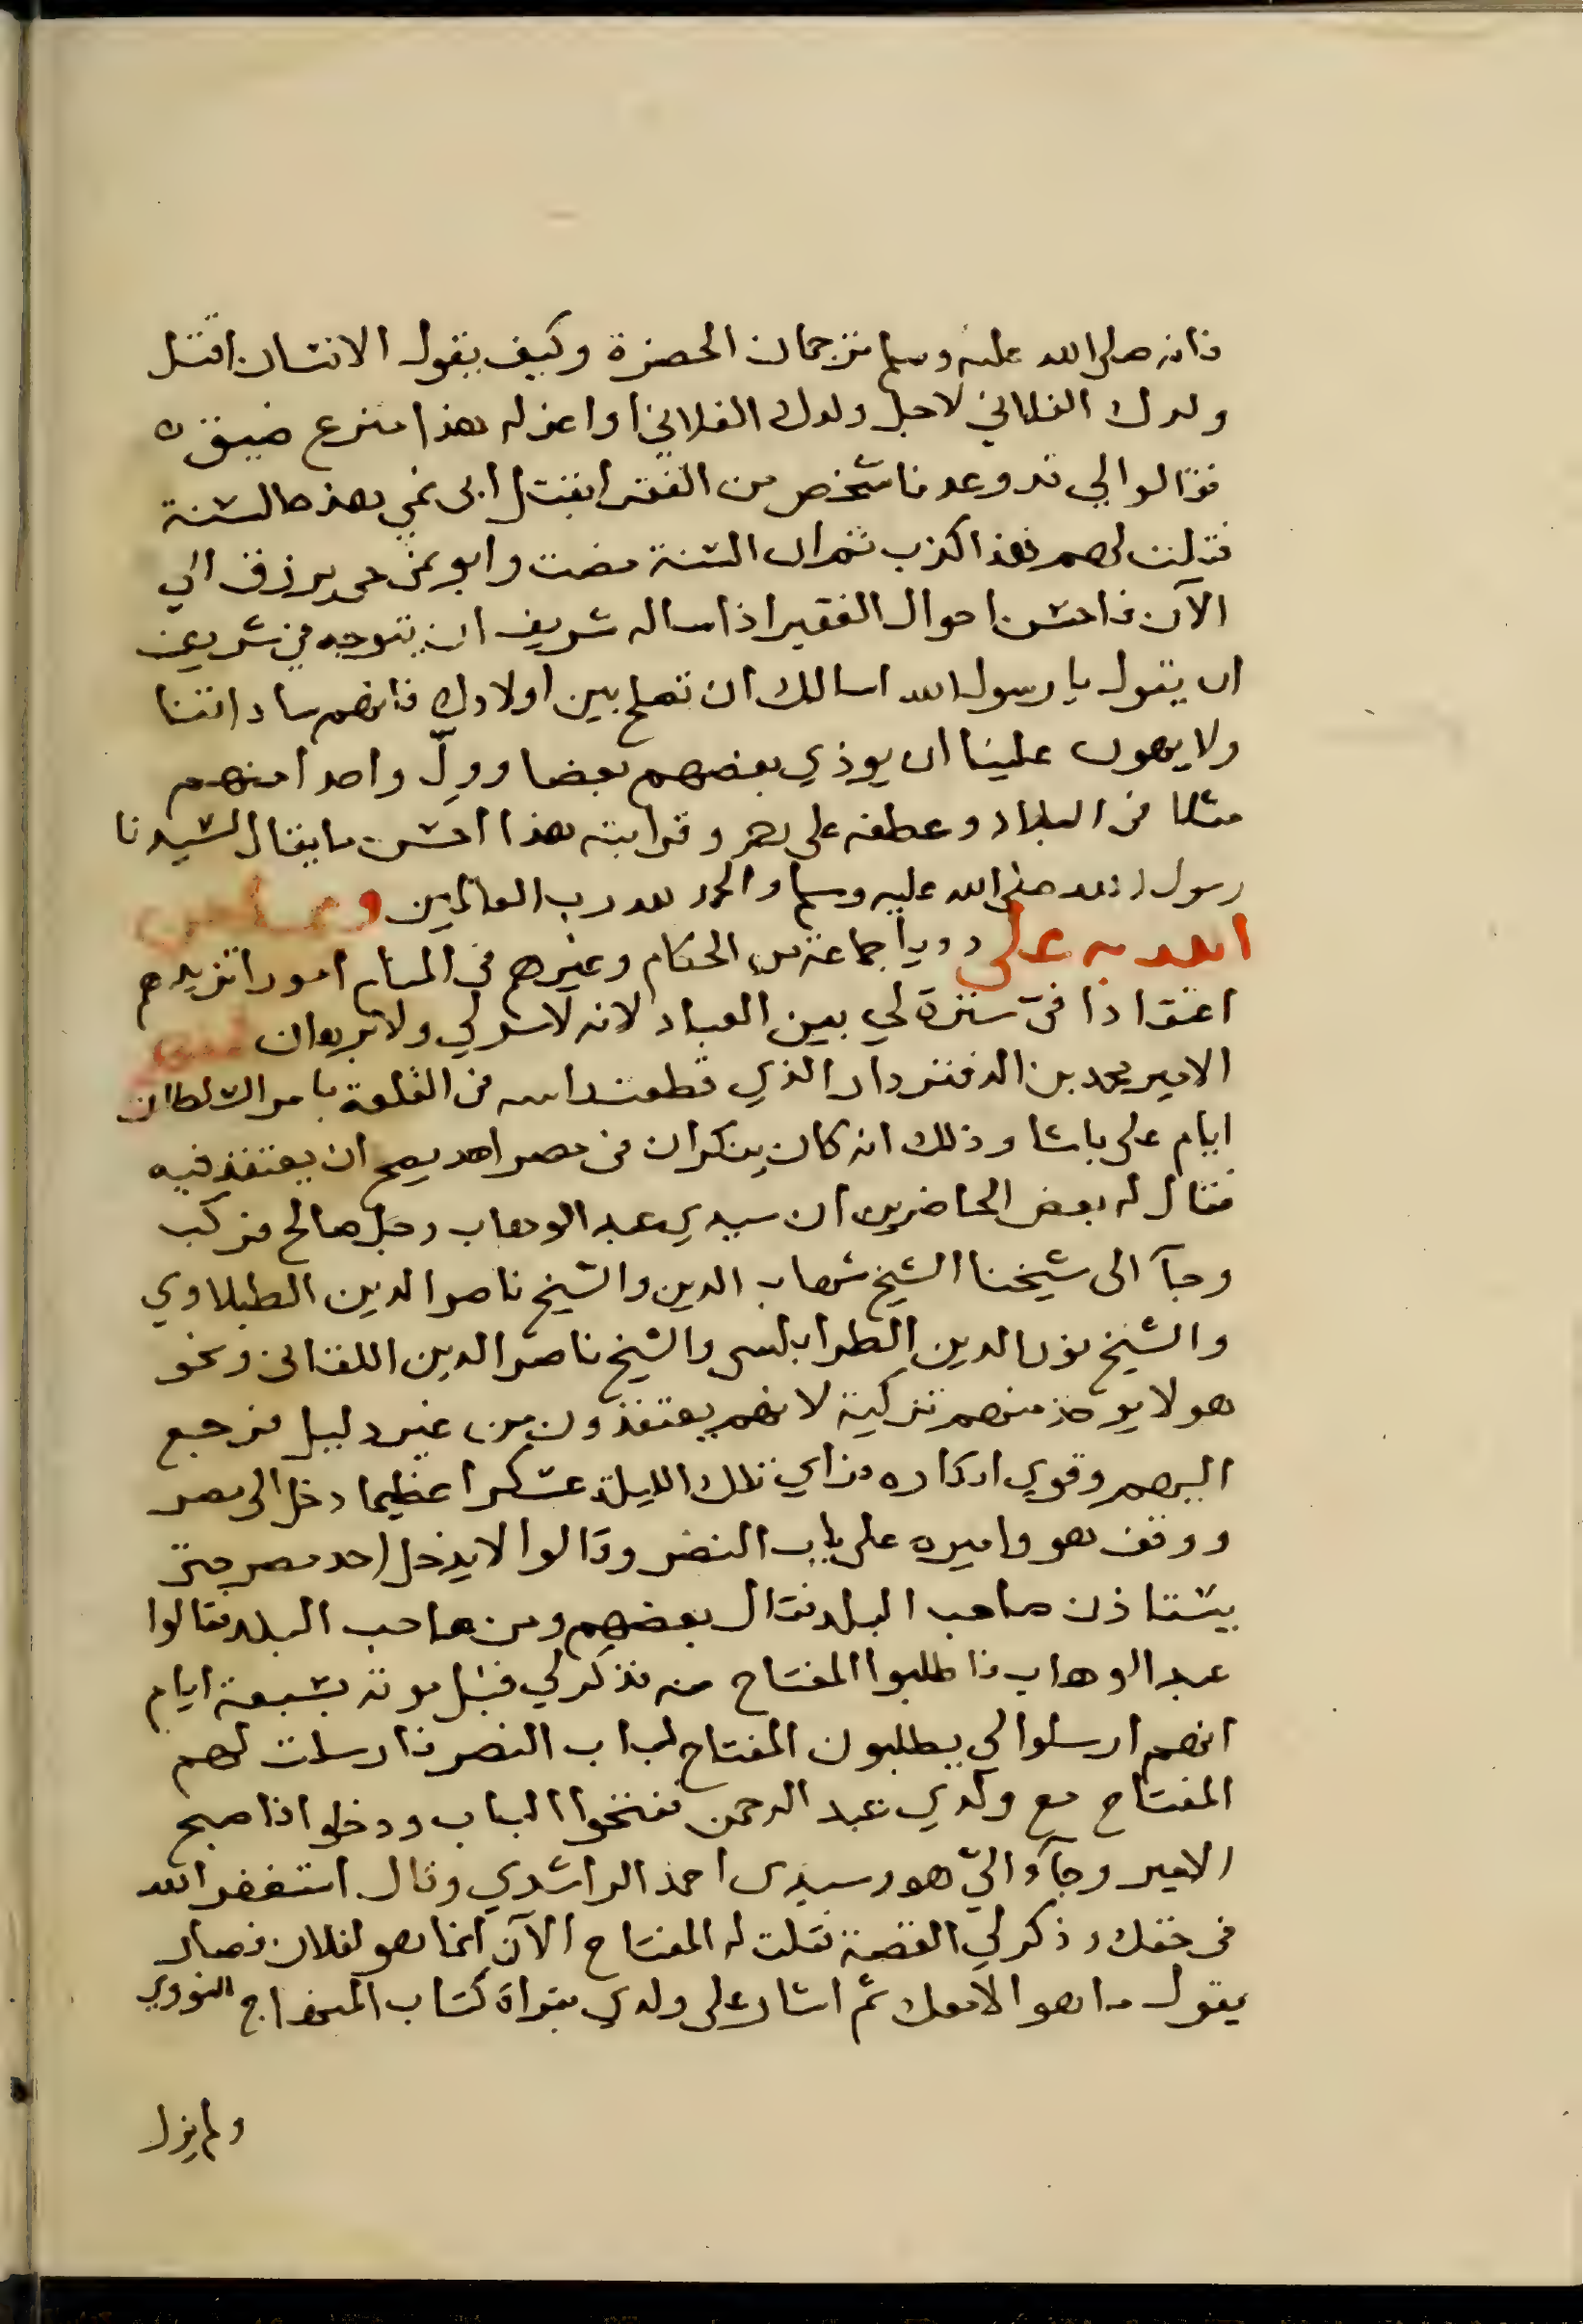 فانه صلى الله عليه وسلم ترجمان الحضرة وكيف يقول الانسان اقتل
ولدك الفلاني لاجل ولدك الفلاني او اعزله هذا منزع ضيق ه
فقالوا لي قد وعدنا شخص من الفقرا بقتل ابى نمي بهذه السنة
فقلت لهم هذا كذب ثم ان السنة مضت وابو نمى حى يرزق الي
الآن فاحسن احوال الفقير اذا ساله شريف ان يتوجه في شريف
ان يقول يا رسول الله اسالك ان تصلح بين اولادك فانهم ساداتنا
ولا يهون علينا ان يوذي بعضهم بعضا وولّ واحدا منهم
مثلا في البلاد وعطفه على رحمه وقرابته هذا احسن ما يقال لسيدنا
رسول الله صلى الله عليه وسلم والحمد لله رب العالمين ومما من
الله به على رويا جماعة من الحكام وغيرهم في المنام امورا تزيدهم
اعتقادا فىّ سترة لي بين العباد لانه لا سر لي ولا برهان
الامير محمد بن الدفتردار الذي قطعت راسه في القلعة بامر السلطان
ايام على باشا وذلك انه كان ينكر ان في مصر احد يصح ان يعتقد فيه
فقال له بعض الحاضرين ان سيدي عبد الوهاب رجل صالح فركب
وجآ الى شيخنا الشيخ شهاب الدين والشيخ ناصر الدين الطبلاوي
والشيخ نور الدين الطرابلسى والشيخ ناصر الدين اللقانى ونحو
هولا يوخذ منهم تزكية لانهم يعتقدون من غير دليل فرجع
اليهم وقوي انكاره فراي تلك الليلة عسكرا عظيما دخل الى مصر
ووقف هو واميره على باب النصر وقالوا لا يدخل احد مصر حتى
يستاذن صاحب البلد فقال بعضهم ومن صاحب البلد فقالوا
عبد الوهاب فاطلبوا المفتاح منه فذكر لي قبل موته بسبعة ايام
انهم ارسلوا لي يطلبون المفتاح لباب النصر فارسلت لهم
المفتاح مع ولدي عبد الرحمن ففتحوا الباب ودخلوا فاصبح
الامير وجآء اليّ هو وسيدى احمد الراشدي وقال استغفر الله
في حقك وذكر لي القصة فقلت له المفتاح الآن انما هو لفلان فصار
يقول ما هو الا معك ثم اشار على ولدي بقراة كتاب المنهاج النووي
ولم يزل